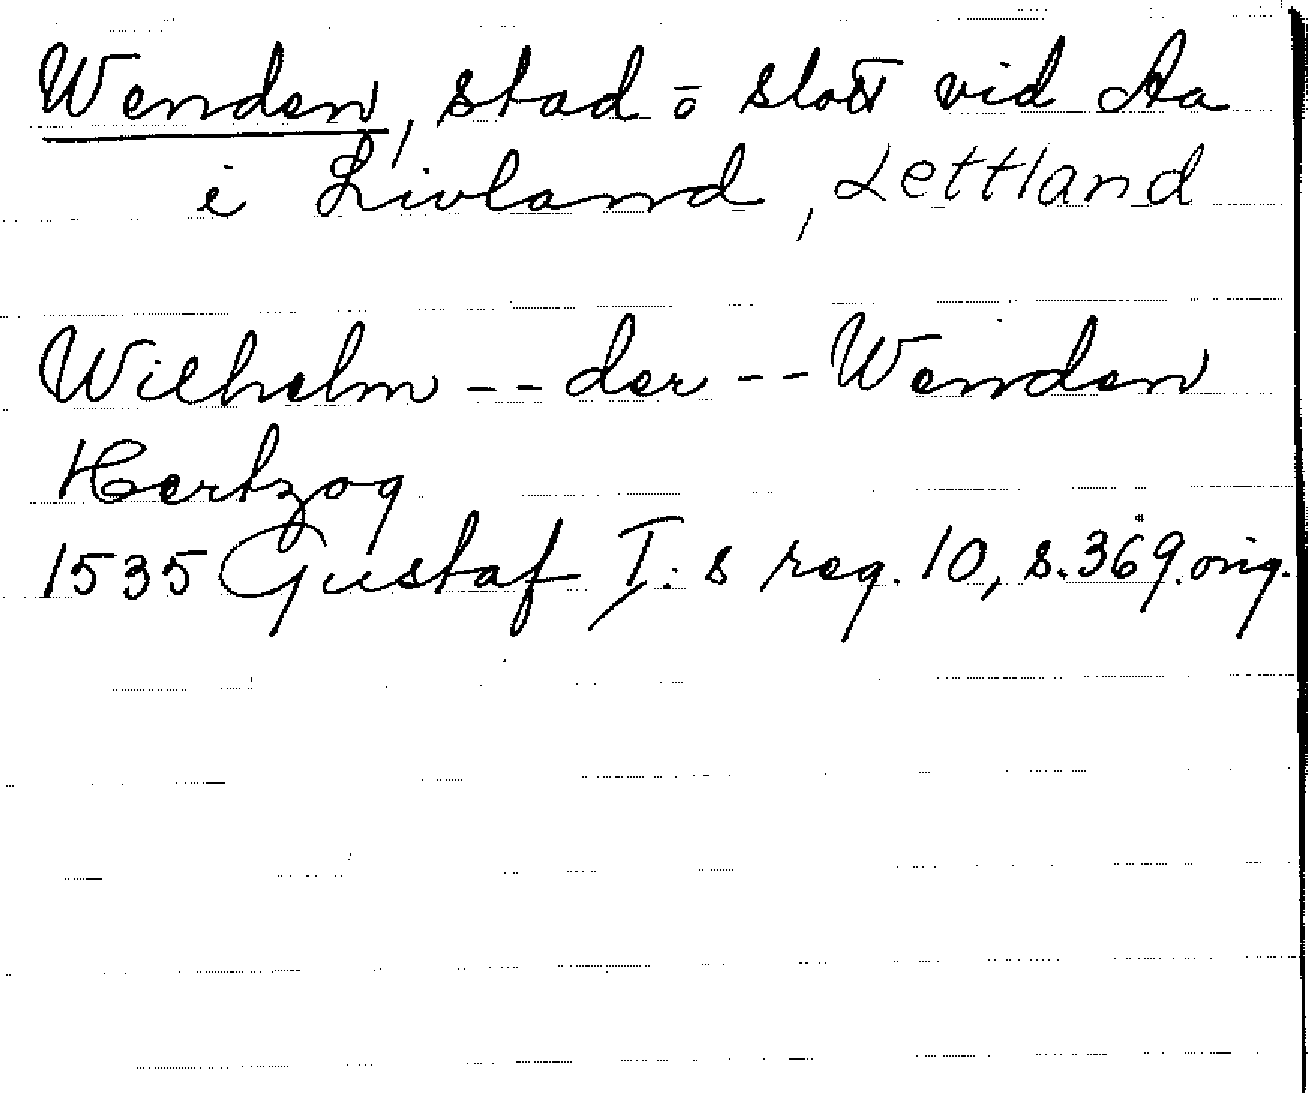 Wenden, stad o slott vid Aa
i Livland, Lettland
Wilhelm -- der -- Wenden
Hertzog
1535 Gustaf I:s reg. 10, s. 369. orig.